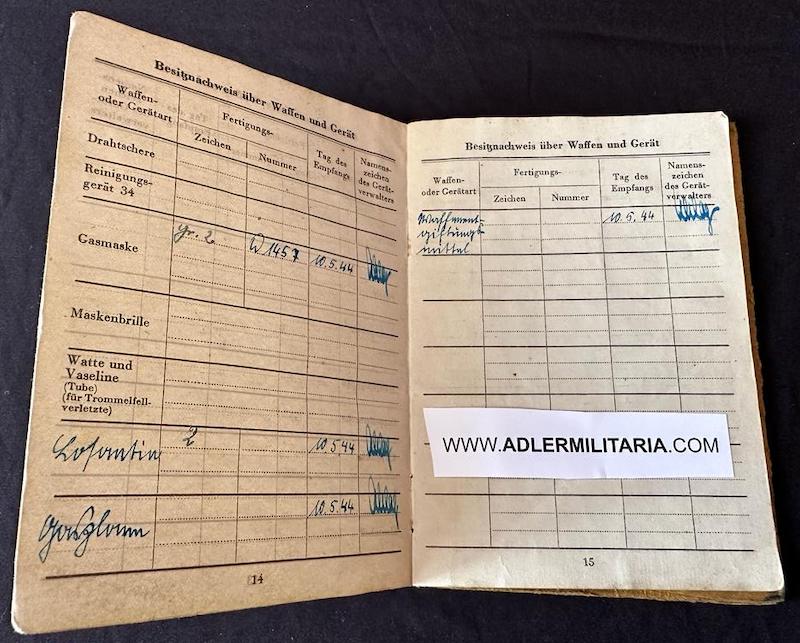 Besitznachweis über Waffen und Gerät
Waffen-
oder Gerätart
Fertigungs-
Zeichen
Nummer
Tag des
Empfangs
Namens-
zeichen
des Gerät-
verwalters
Drahtschere
Reinigungs-
gerät 34
Gasmaske
gr. 2
1457
10.5.44
Maskenbrille
Watte und
Vaseline
(Tube)
(für Trommelfell-
verletzte)
Losantin
2
10.5.44
10.5.44
14
Besitznachweis über Waffen und Gerät
Waffen-
oder Gerätart
Fertigungs-
Zeichen
Nummer
Tag des
Empfangs
Namens-
zeichen
des Gerät-
verwalters
10.5.44
giftungs
mittel
WWW.ADLERMILITARIA.COM
15